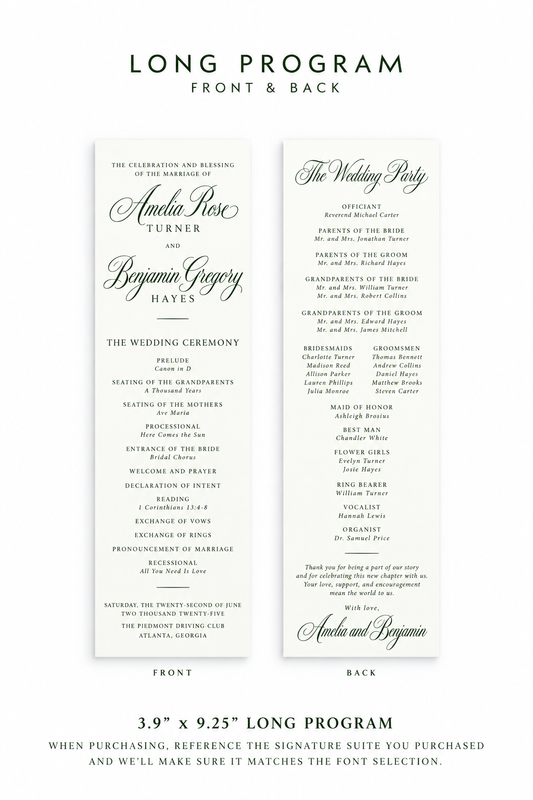 LONG PROGRAM
FRONT & BACK
THE CELEBRATION AND BLESSING
OF THE MARRIAGE OF
Amelia Rose
TURNER
AND
Benjamin Gregory
HAYES
THE WEDDING CEREMONY
PRELUDE
Canon in D
SEATING OF THE GRANDPARENTS
A Thousand Years
SEATING OF THE MOTHERS
Ave Maria
PROCESSIONAL
Here Comes the Sun
ENTRANCE OF THE BRIDE
Bridal Chorus
WELCOME AND PRAYER
DECLARATION OF INTENT
READING
1 Corinthians 13:4-8
EXCHANGE OF VOWS
EXCHANGE OF RINGS
PRONOUNCEMENT OF MARRIAGE
RECESSIONAL
All You Need Is Love
SATURDAY, THE TWENTY-SECOND OF JUNE
TWO THOUSAND TWENTY-FIVE
THE PIEDMONT DRIVING CLUB
ATLANTA, GEORGIA
FRONT
The Wedding Party
OFFICIANT
Reverend Michael Carter
PARENTS OF THE BRIDE
Mr. and Mrs. Jonathan Turner
PARENTS OF THE GROOM
Mr. and Mrs. Richard Hayes
GRANDPARENTS OF THE BRIDE
Mr. and Mrs. William Turner
Mr. and Mrs. Robert Collins
GRANDPARENTS OF THE GROOM
Mr. and Mrs. Edward Hayes
Mr. and Mrs. James Mitchell
BRIDESMAIDS
Charlotte Turner
Madison Reed
Allison Parker
Lauren Phillips
Julia Monroe
GROOMSMEN
Thomas Bennett
Andrew Collins
Daniel Hayes
Matthew Brooks
Steven Carter
MAID OF HONOR
Ashleigh Brosius
BEST MAN
Chandler White
FLOWER GIRLS
Evelyn Turner
Josie Hayes
RING BEARER
William Turner
VOCALIST
Hannah Lewis
ORGANIST
Dr. Samuel Price
Thank you for being a part of our story
and for celebrating this new chapter with us.
Your love, support, and encouragement
mean the world to us.
With love,
Amelia and Benjamin
BACK
3.9” x 9.25” LONG PROGRAM
WHEN PURCHASING, REFERENCE THE SIGNATURE SUITE YOU PURCHASED
AND WE’LL MAKE SURE IT MATCHES THE FONT SELECTION.